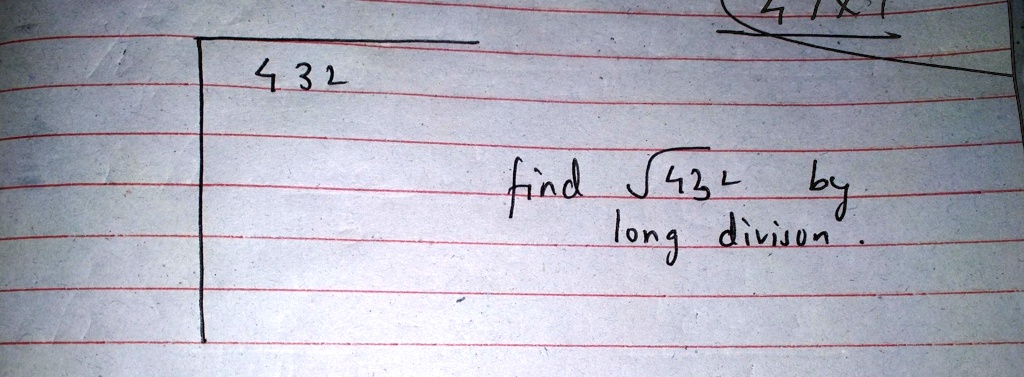 432
find √432 by
long divison.